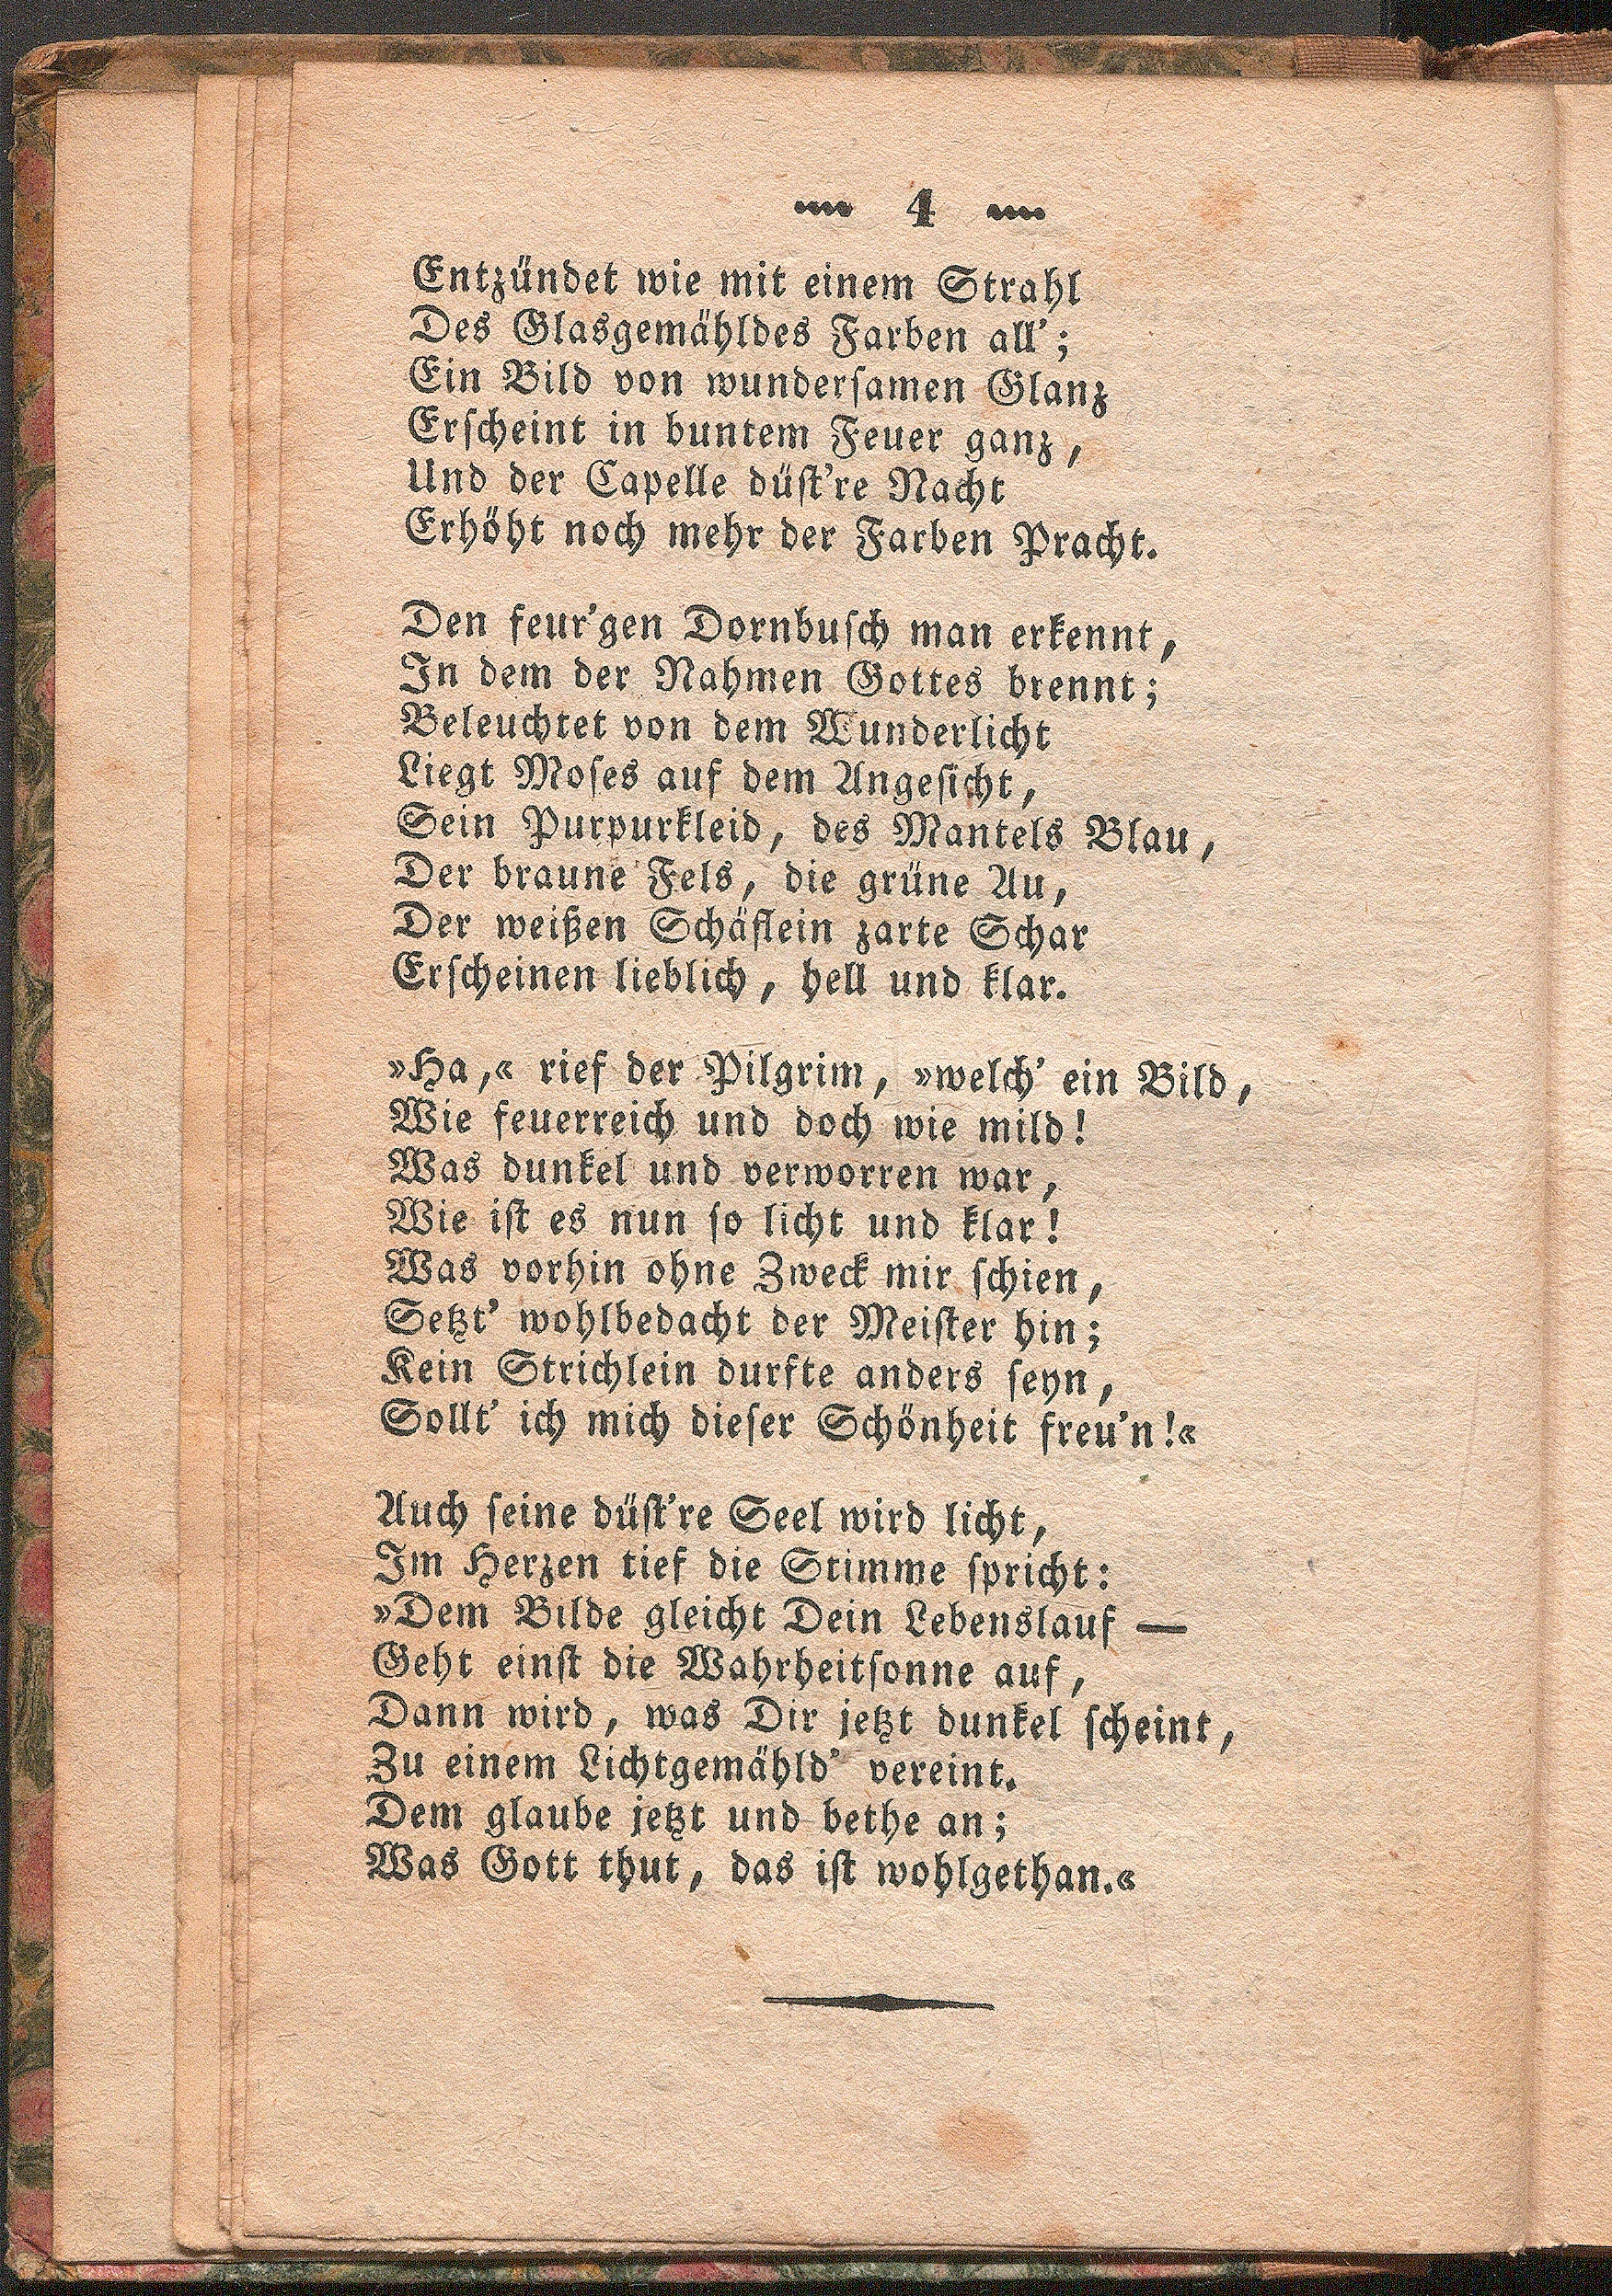 — 4 —
Entzündet wie mit einem Strahl
Des Glasgemähldes Farben all’;
Ein Bild von wunderſamen Glanz
Erſcheint in buntem Feuer ganz,
Und der Capelle düſt’re Nacht
Erhöht noch mehr der Farben Pracht.
Den feur’gen Dornbuſch man erkennt,
In dem der Nahmen Gottes brennt;
Beleuchtet von dem Wunderlicht
Liegt Moſes auf dem Angeſicht,
Sein Purpurkleid, des Mantels Blau,
Der braune Fels, die grüne Au,
Der weißen Schäflein zarte Schar
Erſcheinen lieblich, hell und klar.
»Ha,« rief der Pilgrim, »welch’ ein Bild,
Wie feuerreich und doch wie mild!
Was dunkel und verworren war,
Wie iſt es nun ſo licht und klar!
Was vorhin ohne Zweck mir ſchien,
Setzt’ wohlbedacht der Meiſter hin;
Kein Strichlein durfte anders ſeyn,
Sollt’ ich mich dieſer Schönheit freu’n!«
Auch ſeine düſt’re Seel wird licht,
Im Herzen tief die Stimme ſpricht:
»Dem Bilde gleicht Dein Lebenslauf —
Geht einſt die Wahrheitſonne auf,
Dann wird, was Dir jetzt dunkel ſcheint,
Zu einem Lichtgemähld’ vereint.
Dem glaube jetzt und bethe an;
Was Gott thut, das iſt wohlgethan.«